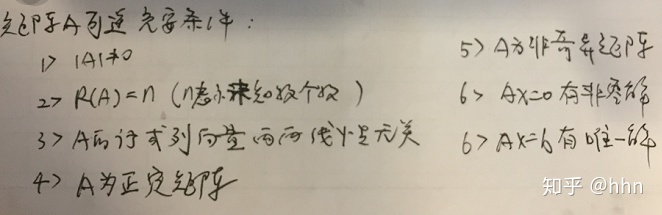 矩阵A可逆充要条件:
1> |A|≠0
2> R(A)=n (n表示未知数个数)
3> A的行或列向量两两线性无关
4> A为正定矩阵
5> A为非奇异矩阵
6> AX=0有非零解
6> AX=b有唯一解
知乎 @hhn